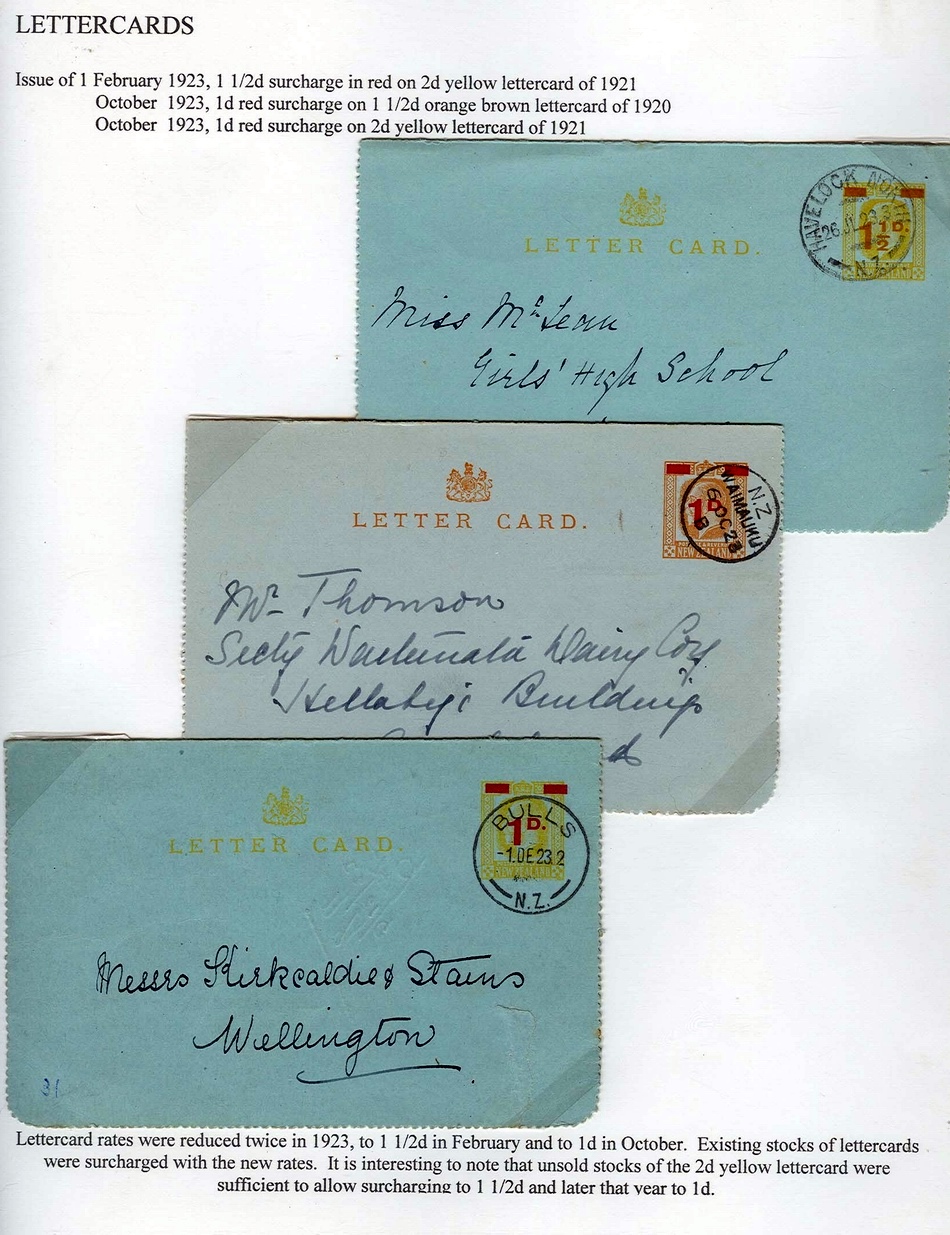 LETTERCARDS
Issue of 1 February 1923, 1 1/2d surcharge in red on 2d yellow lettercard of 1921
October 1923, 1d red surcharge on 1 1/2d orange brown lettercard of 1920
October 1923, 1d red surcharge on 2d yellow lettercard of 1921
HAVELOCK NOR
26 JL 23
N.Z.
1 1/2 D.
LETTER CARD.
Miss McLean
Girls' High School
LETTER CARD.
1 D.
NEW ZEALAND
N.Z.
WAIMAUKU
6 OC 23
B
Mr Thomson
Secty Waitemata Dairy Coy
Hellaby's Buildings
LETTER CARD.
1 D.
NEW ZEALAND
BULLS
-1.DE 23 2
N.Z.
Messrs Kirkcaldie & Stains
Wellington
31
Lettercard rates were reduced twice in 1923, to 1 1/2d in February and to 1d in October. Existing stocks of lettercards
were surcharged with the new rates. It is interesting to note that unsold stocks of the 2d yellow lettercard were
sufficient to allow surcharging to 1 1/2d and later that year to 1d.